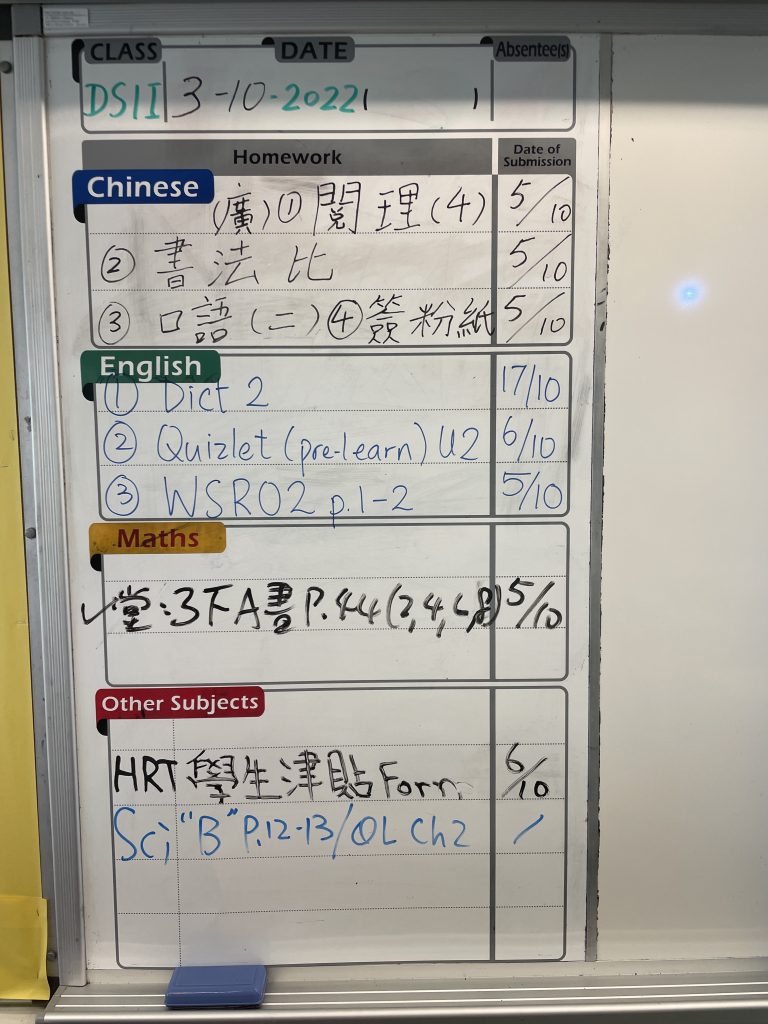 CLASS DATE Absentee(s)
DS1I 3-10-2022 ( )
Homework Date of Submission
Chinese
(廣) ① 閱理 (4) 5/10
② 書法比 5/10
③ 口語 (二) ④ 簽粉紙 5/10
English
① Dict 2 17/10
② Quizlet (pre-learn) U2 6/10
③ WSR02 p.1-2 5/10
Maths
✓堂:3下A書 P.44 (2,4,6,8) 5/10
Other Subjects
HRT 學生津貼 Form 6/10
Sci "B" P.12-13/QL Ch2 /